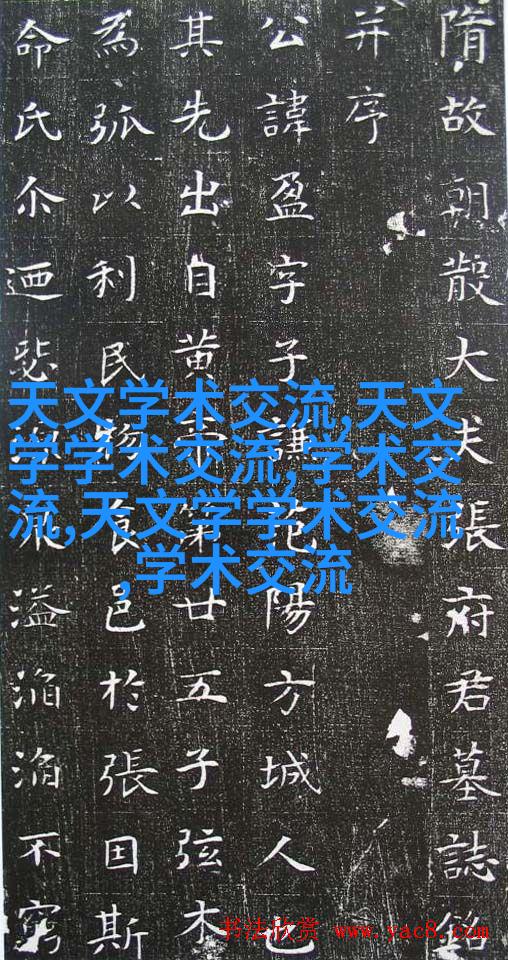 隋故朝散大夫張府君墓誌銘
并序
公諱盈字子謙范陽方城人也
其先出自黃帝第廿五子弦木
為弧以利民物食邑於張因斯
命氏尒迺悲流溢滔滔不窮
天文学术交流,天文
学学术交流,学术交
流,天文学学术交流
,学术交流
书法欣赏 www.yac8.com